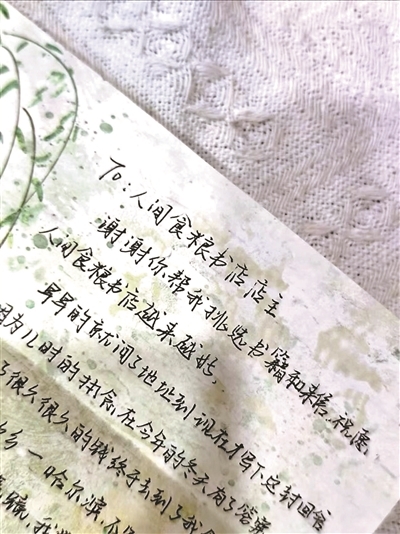 To：人间食粮书店店主
谢谢你帮我挑选书籍和来信，祝愿
人间食粮书店越来越好，
早早的就问了地址到现在才写下这封回信
因为儿时的执念，在今年的冬天有了答案
了很久很久的钱终于去到了我
乡一哈尔滨，不